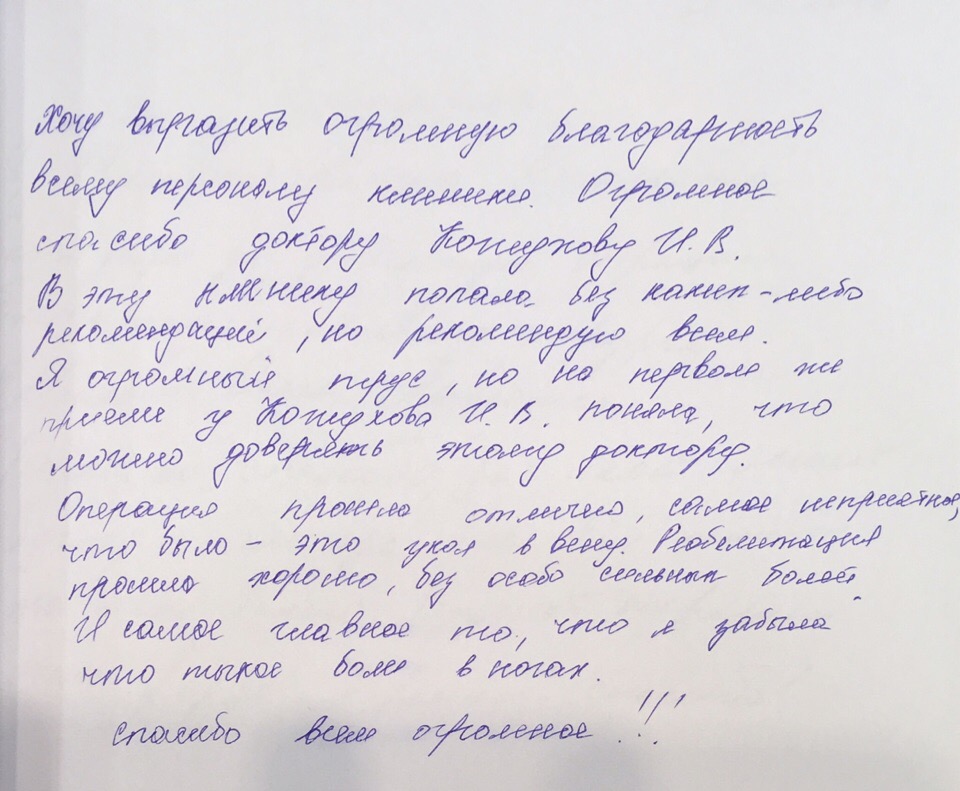 Хочу выразить огромную благодарность
всему персоналу клиники. Огромное
спасибо доктору Кожухову И. В.
В эту клинику попала без каких-либо
рекомендаций, но рекомендую всем.
Я огромный трус, но на первом же
приеме у Кожухова И. В. поняла, что
можно доверять этому доктору.
Операция прошла отлично, самое неприятное,
что было – это укол в вену. Реабелитация
прошла хорошо, без особо сильных болей.
И самое главное то, что я забыла
что такое боли в ногах.
спасибо всем огромное !!!